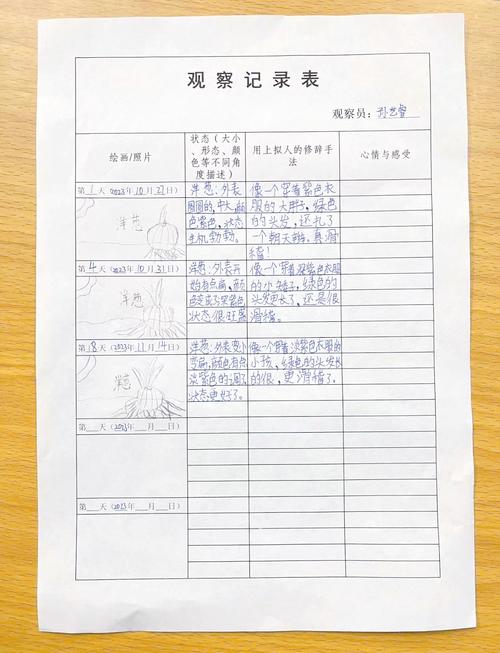 观察记录表
观察员：孙艺睿
绘画/照片
状态（大小
、形态、颜
色等不同角
度描述）
用上拟人的修辞手
法
心情与感受
第1天（2023年10月27日）
洋葱
洋葱：外表
圆圆的，中大，颜
色紫色，状态
生机勃勃。
像一个穿着紫色衣
服的大胖子，绿色
的头发，还扎了
一个朝天辫，真滑
稽！
第4天（2023年10月31日）
洋葱
洋葱：外表开
始有点扁，颜
色变成了深紫色，
状态很旺盛
像一个穿着深紫色衣服
的小矮子，绿色的
头发更长了，还是很
滑稽。
第18天（2023年11月14日）
洋葱
洋葱：外表变小
变扁，颜色有点
淡紫色的
状态更好了。
像一个穿着淡紫色衣服的
小孩，绿色的头发长
的很，更滑稽了。
第__天（2023年__月__日）
第__天（2023年__月__日）